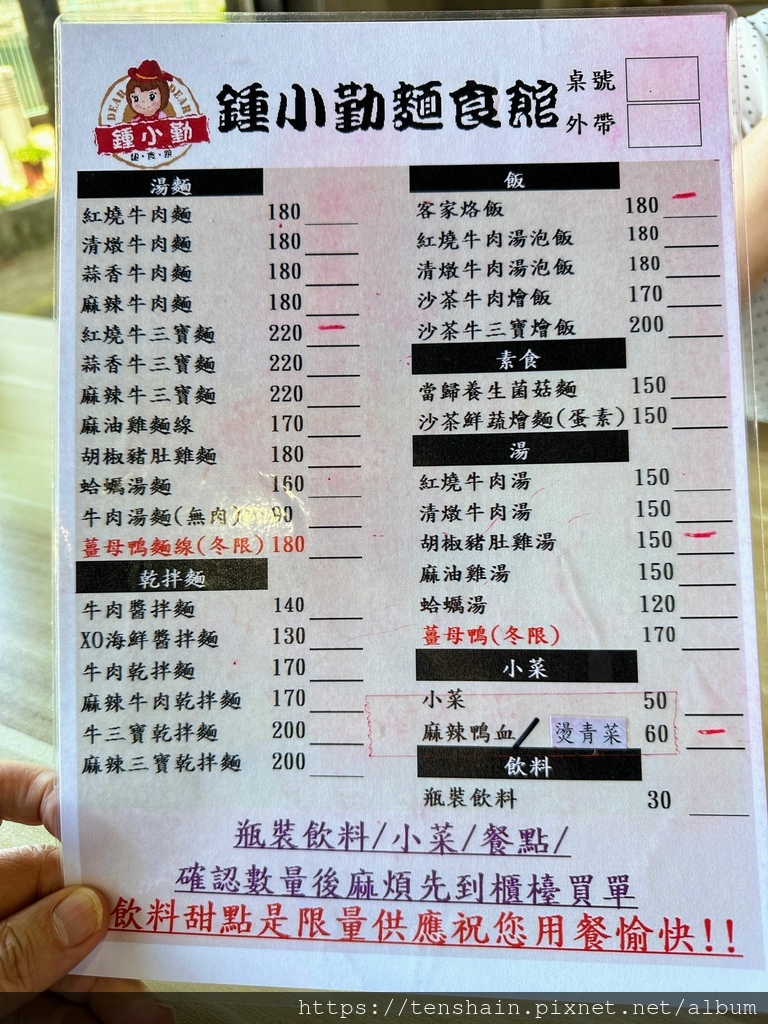 DEAR DEAR
鍾小勤
麵・食・館
鍾小勤麵食館
桌號
外帶
湯麵
紅燒牛肉麵 180
清燉牛肉麵 180
蒜香牛肉麵 180
麻辣牛肉麵 180
紅燒牛三寶麵 220
蒜香牛三寶麵 220
麻辣牛三寶麵 220
麻油雞麵線 170
胡椒豬肚雞麵 180
蛤蠣湯麵 160
牛肉湯麵(無肉) 90
薑母鴨麵線(冬限) 180
乾拌麵
牛肉醬拌麵 140
XO海鮮醬拌麵 130
牛肉乾拌麵 170
麻辣牛肉乾拌麵 170
牛三寶乾拌麵 200
麻辣三寶乾拌麵 200
飯
客家烙飯 180
紅燒牛肉湯泡飯 180
清燉牛肉湯泡飯 180
沙茶牛肉燴飯 170
沙茶牛三寶燴飯 200
素食
當歸養生菌菇麵 150
沙茶鮮蔬燴麵(蛋素) 150
湯
紅燒牛肉湯 150
清燉牛肉湯 150
胡椒豬肚雞湯 150
麻油雞湯 150
蛤蠣湯 120
薑母鴨(冬限) 170
小菜
小菜 50
麻辣鴨血/燙青菜 60
飲料
瓶裝飲料 30
瓶裝飲料/小菜/餐點/
確認數量後麻煩先到櫃檯買單
飲料甜點是限量供應祝您用餐愉快!!
https://tenshain.pixnet.net/album